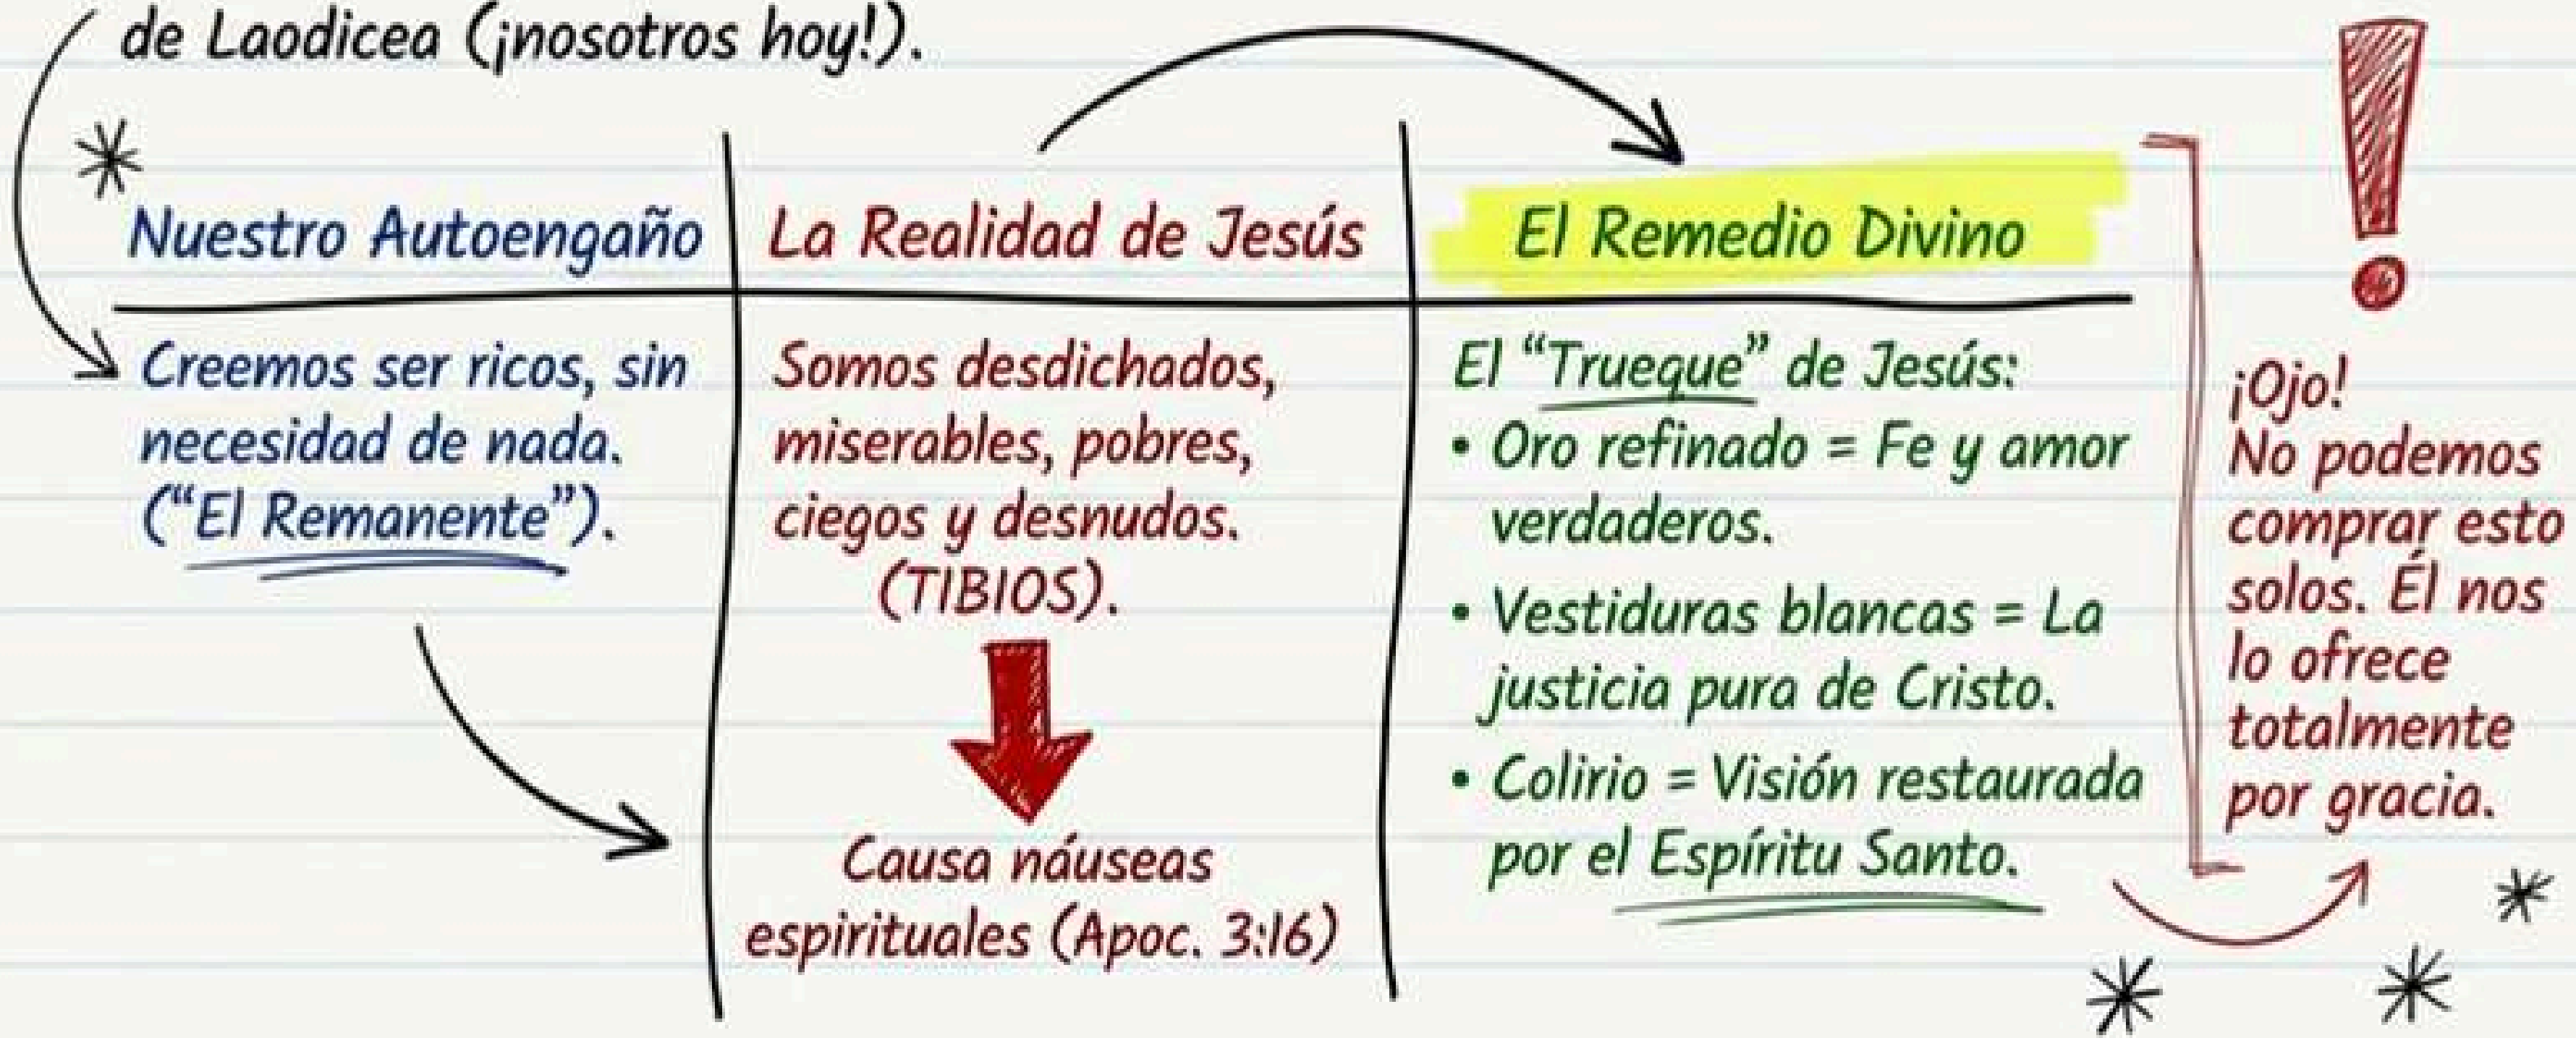 de Laodicea (¡nosotros hoy!).
Nuestro Autoengaño
Creemos ser ricos, sin
necesidad de nada.
(“El Remanente”).
La Realidad de Jesús
Somos desdichados,
miserables, pobres,
ciegos y desnudos.
(TIBIOS).
Causa náuseas
espirituales (Apoc. 3:16)
El Remedio Divino
El “Trueque” de Jesús:
• Oro refinado = Fe y amor
verdaderos.
• Vestiduras blancas = La
justicia pura de Cristo.
• Colirio = Visión restaurada
por el Espíritu Santo.
!
¡Ojo!
No podemos
comprar esto
solos. Él nos
lo ofrece
totalmente
por gracia.